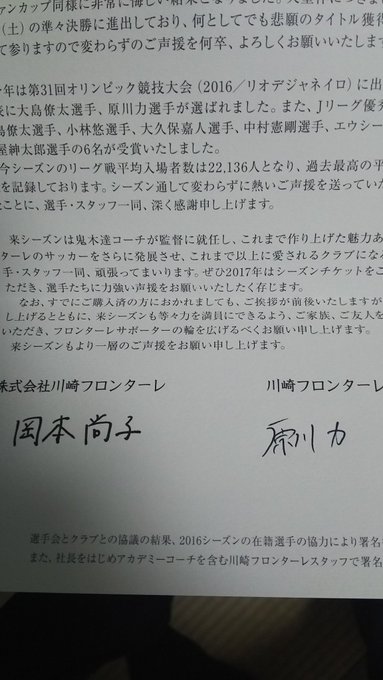 ァンカップ同様に非常に悔しい結果となりました。天皇杯につきま
(土)の準々決勝に進出しており、何としてでも悲願のタイトル獲得
て参りますので変わらずのご声援を何卒、よろしくお願いいたします
年は第31回オリンピック競技大会(2016/リオデジャネイロ)に出
表に大島僚太選手、原川力選手が選ばれました。また、Jリーグ優秀
島僚太選手、小林悠選手、大久保嘉人選手、中村憲剛選手、エウシー
屋紳太郎選手の6名が受賞いたしました。
今シーズンのリーグ戦平均入場者数は22,136人となり、過去最高の平
を記録しております。シーズン通して変わらずに熱いご声援を送ってい
たことに、選手・スタッフ一同、深く感謝申し上げます。
来シーズンは鬼木達コーチが監督に就任し、これまで作り上げた魅力あ
ターレのサッカーをさらに発展させ、これまで以上に愛されるクラブにな
手・スタッフ一同、頑張ってまいります。ぜひ2017年はシーズンチケットをご
ただき、選手たちに力強い声援をお願いいたしたく存じます。
なお、すでにご購入済の方におかれましても、ご挨拶が前後いたしますが
し上げるとともに、来シーズンも等々力を満員にできるよう、ご家族、ご友人を
いただき、フロンターレサポーターの輪を広げるべくお願い申し上げます。
来シーズンもより一層のご声援をお願い申し上げます。
株式会社川崎フロンターレ 川崎フロンターレ
岡本尚子 原川力
選手会とクラブとの協議の結果、2016シーズンの在籍選手の協力により署名を
また、社長をはじめアカデミーコーチを含む川崎フロンターレスタッフで署名